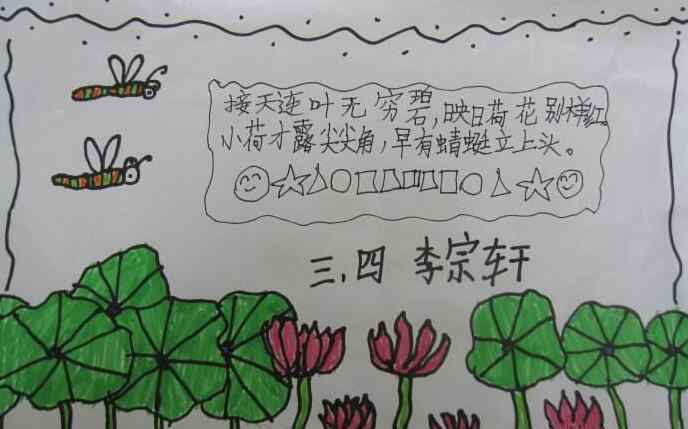 接天连叶无穷碧,映日荷花别样红。
小荷才露尖尖角,早有蜻蜓立上头。
三.四 李宗轩